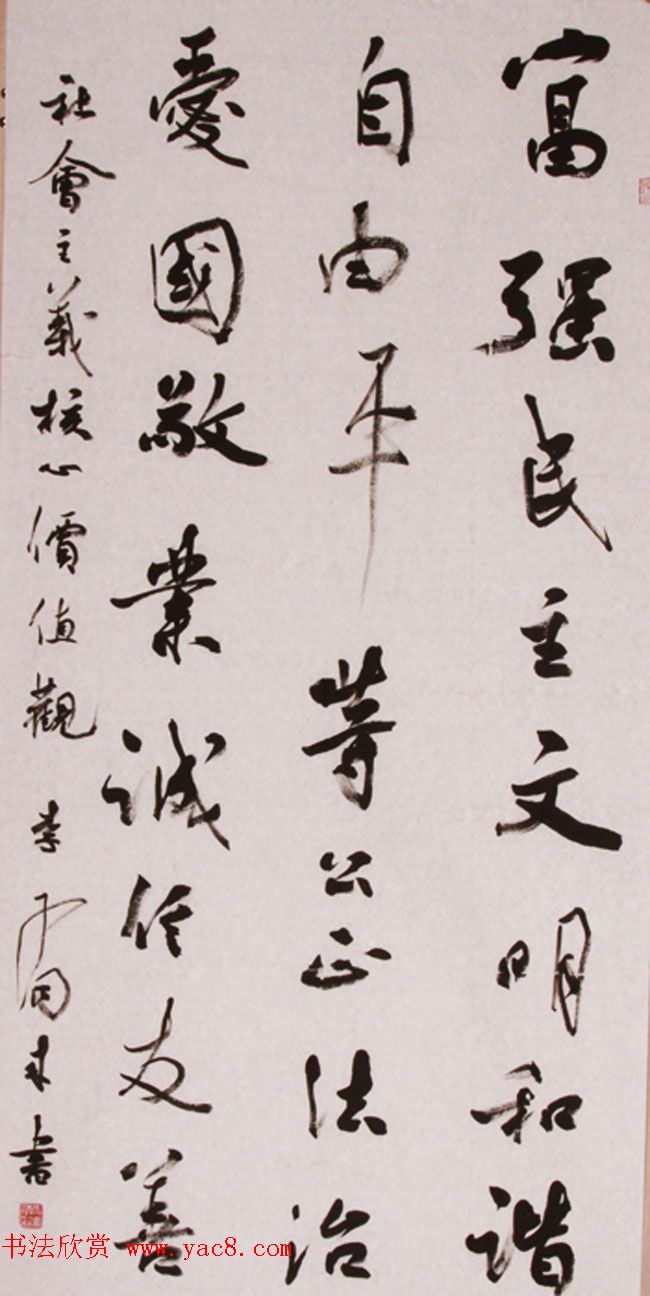 富强民主文明和諧
自由平等公正法治
愛國敬業誠信友善
社會主義核心價值觀 李 書
书法欣赏 www.yac8.com